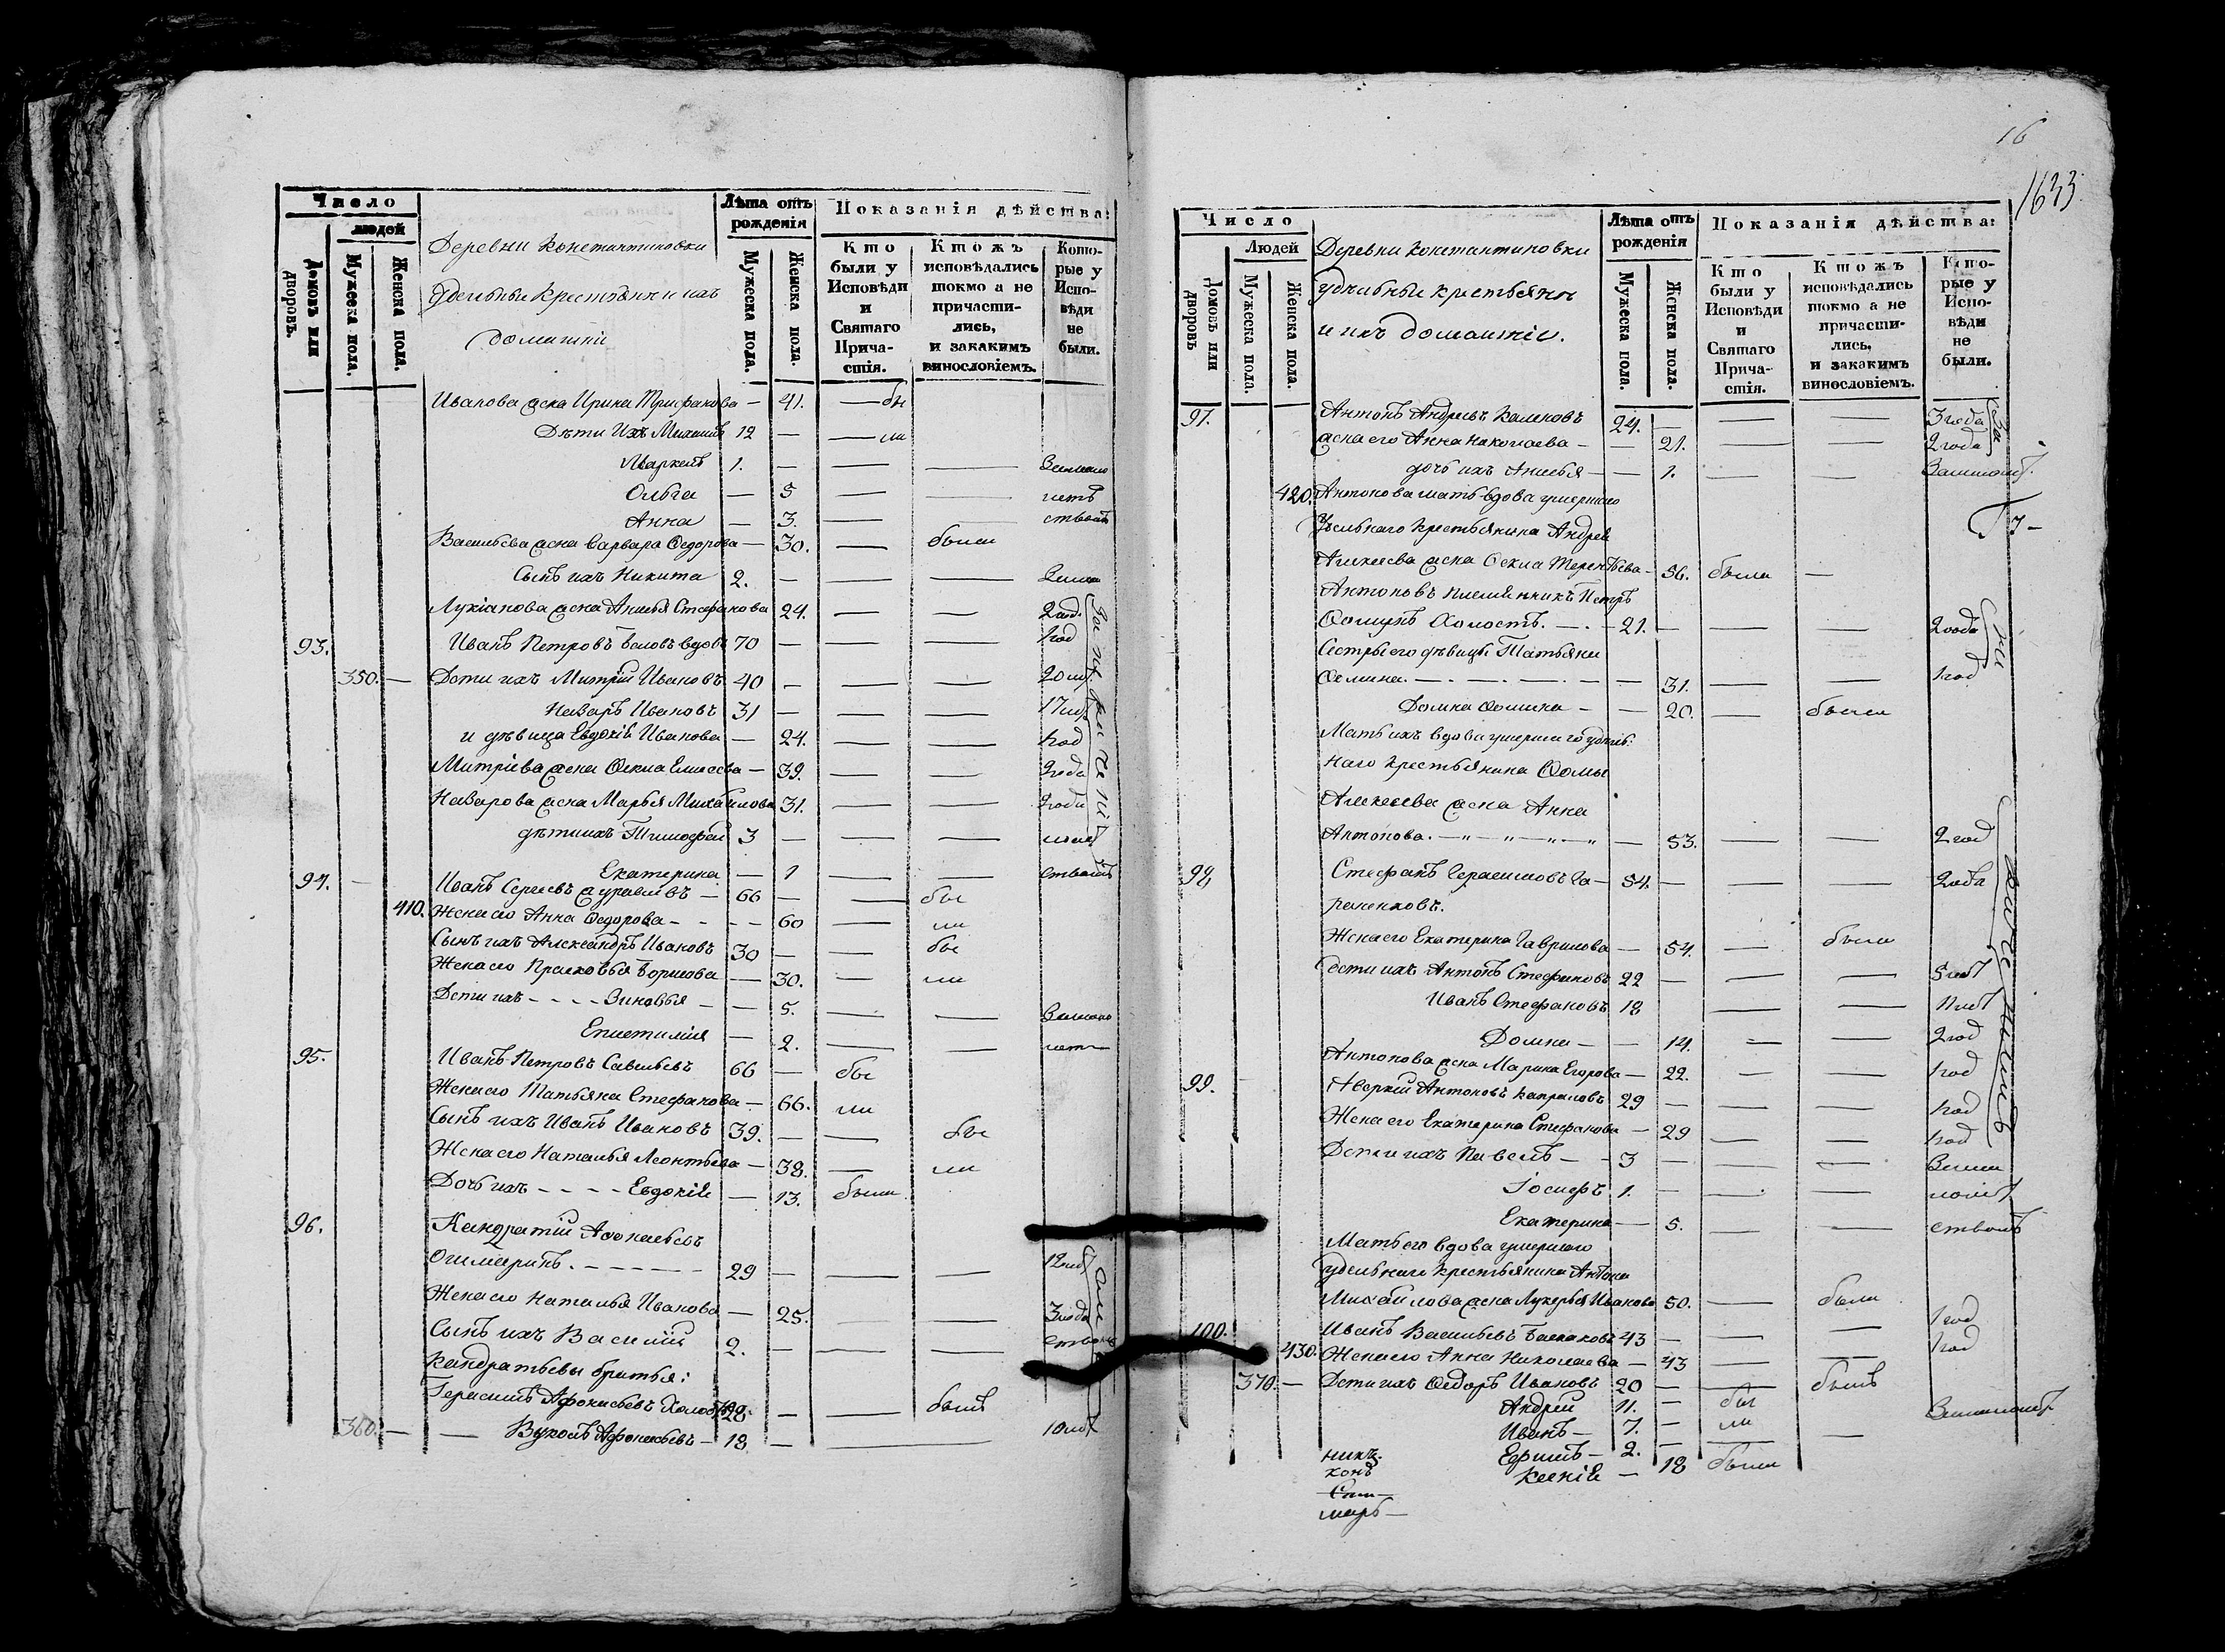 Число
людей
Домовъ или дворовъ.
Мужеска пола.
Женска пола.
Деревни Константиновки
Удельные Крестьяне и ихъ
домашніи
Лѣта отъ рожденія
Мужеска пола.
Женска пола.
Показанія дѣйства:
Кто были у Исповѣди и Святаго Причастія.
Ктожъ исповѣдались токмо а не причастились, и закакимъ винословіемъ.
Которые у Исповѣди не были.
Иванова жена Ирина Трифанова — 41. — бы
Дѣти Ихъ Михаилъ 12 — — ли
Маркелъ 1. — — —
Ольга — 5 — — летъ
Анна — 3. — — ствомъ
Васильева жена Варвара Ѳедорова — 30. — были
Сынъ ихъ Никита 2. — — —
Лукіанова жена Анисья Стефанова 24. — — 2 год.
93. Иванъ Петровъ Беловъ вдовъ 70 — — — 1 год
350. — Дети ихъ Митрій Ивановъ 40 — — — 20 лет
Назаръ Ивановъ 31 — — — 17 лет
и дѣвица Евдокія Иванова — 24. — — 1 год
Митріева жена Ѳекла Елисеева — 39. — — 2 года
Назарова жена Марья Михайлова 31. — — 2 года
дѣти ихъ Тимофей 3 — — — малол
Екатерина — 1 — — ствомъ
94. — Иванъ Сергеевъ Журавлевъ — 66 — — бы
410. Жена его Анна Ѳедорова - - - - 60 — ли
Сынъ ихъ Александръ Ивановъ 30 — — бы
Жена его Прасковья Борисова — 30. — ли
Дети ихъ - - - - Зиновья — — 5. — — Замало
Епистимия — 2. — — лет—
95. Иванъ Петровъ Савельевъ 66 — бы
Жена его Татьяна Стефанова — 66. ли
Сынъ ихъ Иванъ Ивановъ 39. — — бы
Жена его Наталья Леонтьева — 38. — ли
Дочь ихъ - - - - Евдокія — 13. была
96. Кандратій Афонасьевъ
29 — — — 12 лет
Жена его Наталья Иванова — 25. — 3 года
Сынъ ихъ Василій 2. — — — ствомъ
Кандратьевы братья:
Герасимъ Афонасьевъ Холостъ 28. — — былъ
360. — — Вуколъ Афонасьевъ — 18 — — 10 лет
16
1633
Число
Людей
Домовъ или дворовъ
Мужеска пола.
Женска пола.
Деревни Константиновки
удельные крестьяне
и ихъ домашніи.
Лѣта отъ рожденія
Мужеска пола.
Женска пола.
Показанія дѣйства:
Кто были у Исповѣди и Святаго Причастія.
Ктожъ исповѣдались токмо а не причастились, и закакимъ винословіемъ.
Которые у Исповѣди не были.
97. Антонъ Андреевъ 24. — — — 3 года
жена его Анна Николаева — — 21. — — 2 года
дочь ихъ Анисья — — 1. — — Замалолет.
420. Антонова мать вдова умершаго
Удельнаго Крестьянина Андрея
Алексеева жена Ѳекла Терентьева — 56. была —
Антоновъ племянникъ Петръ
Ѳоминъ Холостъ. — . — 21. — — — 2 года
Сестры его дѣвицы Татьяна
Ѳомина. — . — . — . — — 31. — — 1 год
Домна Ѳомина — — 20. — была
Мать ихъ вдова умершаго удель-
наго крестьянина Ѳомы
Алексеева жена Анна
Антонова. — „ — „ — „ — „ — 53. — — 2 год
98 Стефанъ Герасимовъ Га— 54. — — — 2 года
раненковъ.
Жена его Екатерина Гаврилова — 54. — была
Дети ихъ Антонъ Стефановъ 22 — — — 5 лет
Иванъ Стефановъ 18 — — 11 лет
Домна — — 14. — — 2 год
Антонова жена Марина Егорова — 22. — — 1 год
99. Аверкій Антоновъ Капраловъ 29 — — — 1 год
Жена его Екатерина Стефанова — 29 — — 1 год
Дети ихъ Павелъ — — 3 — — —
Іосифъ 1. — — — малолет
Екатерина — 5. — — ствомъ
Мать его вдова умершаго
удельнаго крестьянина Антона
Михайлова жена Лукерья Иванова 50. — была
100. Иванъ Васильевъ Баскаковъ 43 — — — 1 год
430. Жена его Анна Николаева — 43 — — 1 год
370. — Дети ихъ Ѳедоръ Ивановъ 20 — — былъ
Андрей 11. — бы
Иванъ — 7. — ли
Ефимъ — 2. — — — Замалолет.
Ксенія — 18 была